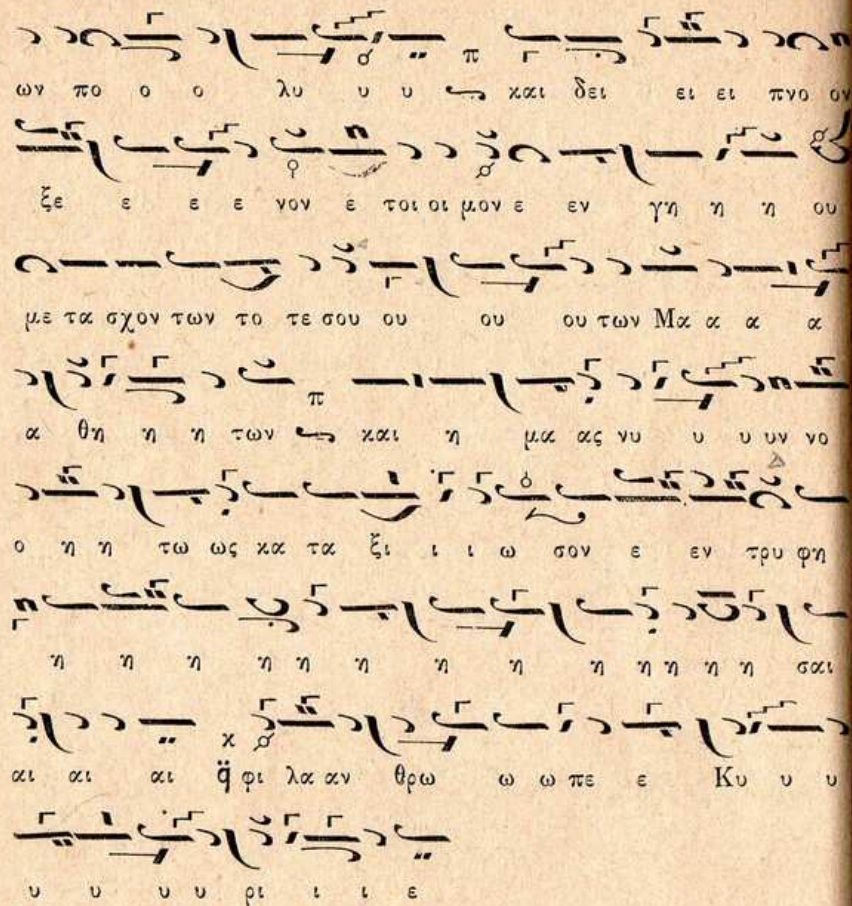 ων πο ο ο λυ υ υ π και δει ει ει πνο ον
ξε ε ε ε νον ε τοι οι μον ε εν γη η η ου
με τα σχον των το τε σου ου ου ου των Μα α α α
α θη η η των π και η μα ας νυ υ υ υν νο
ο η η τω ως κα τα ξι ι ι ω σον ε εν τρυ φη
η η η η η η η η η η η η η σαι
αι αι αι κ φι λα αν θρω ω ω πε ε Κυ υ υ
υ υ υ υ ρι ι ι ε